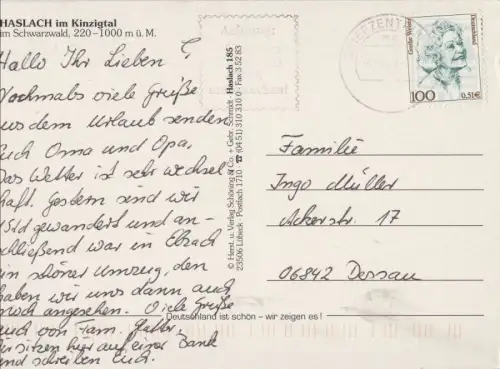 HASLACH im Kinzigtal
im Schwarzwald, 220–1000 m ü. M.
Hallo Ihr Lieben!
Nochmals viele Grüße
aus dem Urlaub senden
Euch Oma und Opa.
Das Wetter ist sehr wechsel
haft. Gestern sind wir
Std gewandert und an-
schließend war in Elzach
ein schöner Umzug, den
haben wir uns dann auch
noch angesehen. Viele Grüße
auch von Fam.
Wir sitzen hier auf einer Bank
und schreiben Euch.
© Herst. u. Verlag Schöning & Co. + Gebr. Schmidt · Haslach 185
23506 Lübeck · Postfach 1710 · ☎ (04 51) 310 310 · Fax 3 52 83
Deutschland ist schön – wir zeigen es!
BRIEFZENTRUM
Grethe Weiser
Deutschland
100
0,51€
Familie
Ingo Müller
Ackerstr. 17
06842 Dessau